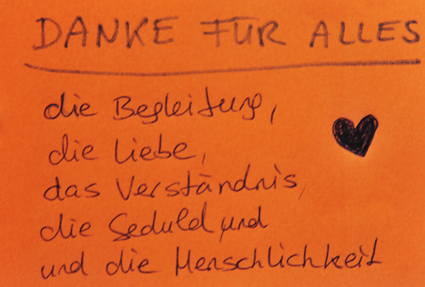 DANKE FÜR ALLES
die Begleitung,
die Liebe,
das Verständnis,
die Geduld und
und die Menschlichkeit